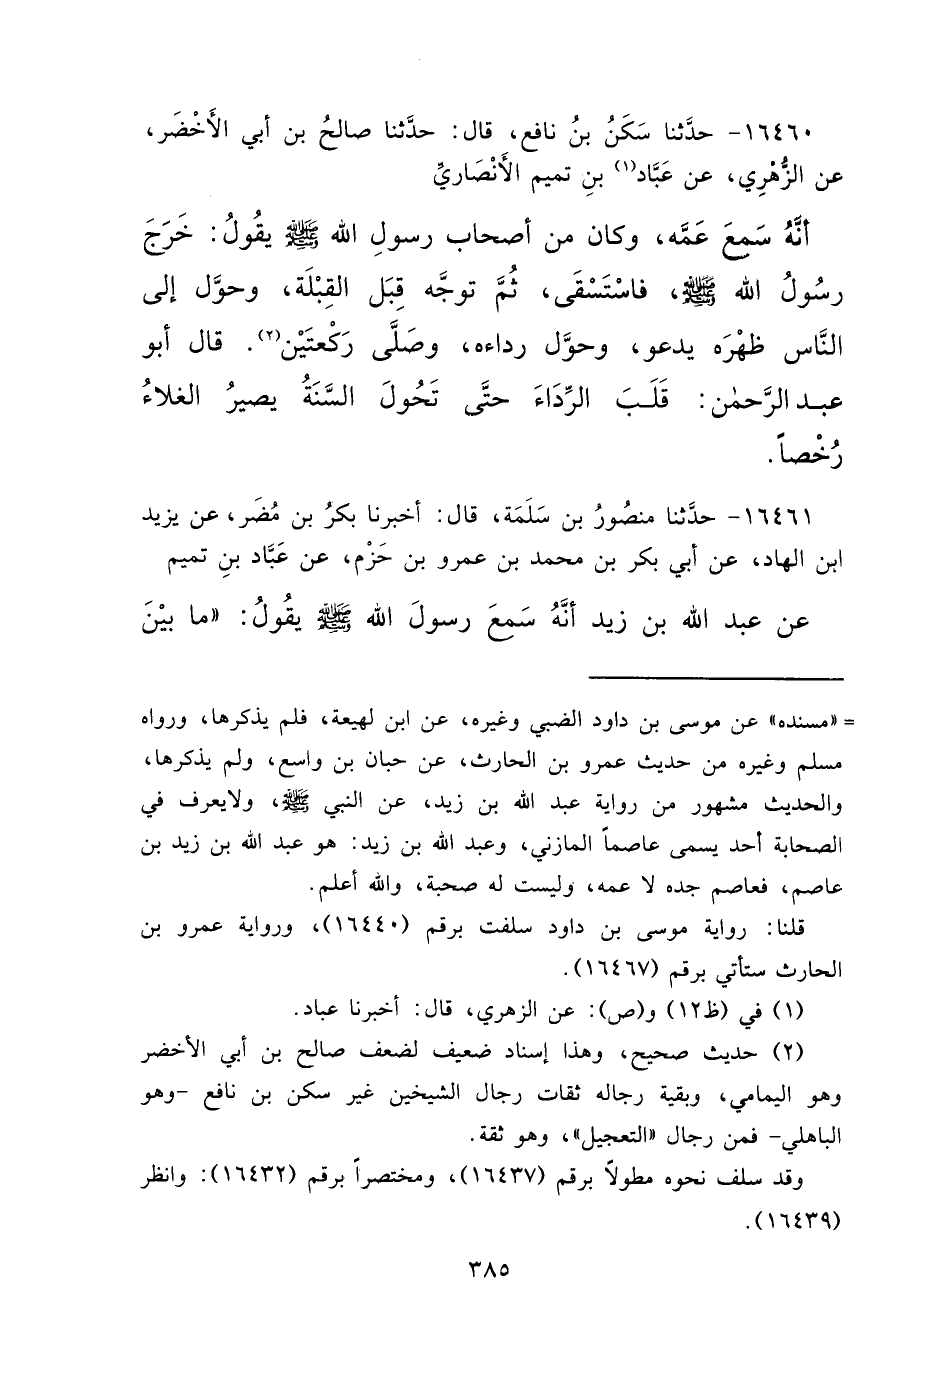 ١٦٤٦٠- حدَّثنا سَكَنُ بنُ نافع، قال: حدَّثنا صالحُ بن أبي الأَخْضَر،
عن الزُّهْرِي، عن عَبَّاد(١) بنِ تميم الأَنْصَاريِّ
أنَّهُ سَمِعَ عَمَّه، وكان من أصحاب رسولِ الله ﷺ يقُولُ: خَرَجَ
رسُولُ الله ﷺ، فاسْتَسْقَى، ثُمَّ توجَّه قِبَل القِبْلَة، وحوَّل إلى
النَّاس ظهْرَه يدعو، وحوَّل رداءه، وصَلَّى رَكْعتَيْن(٢). قال أبو
عبد الرَّحمٰن: قَلَبَ الرِّدَاءَ حتَّى تَحُولَ السَّنَةُ يصيرُ الغلاءُ
رُخْصاً.
١٦٤٦١- حدَّثنا منصُورُ بن سَلَمَة، قال: أخبرنا بكرُ بن مُضَر، عن يزيد
ابن الهاد، عن أبي بكر بن محمد بن عمرو بن حَزْم، عن عَبَّاد بنِ تميم
عن عبد الله بن زيد أنَّهُ سَمِعَ رسولَ الله ﷺ يقُولُ: «ما بيْنَ
= «مسنده» عن موسى بن داود الضبي وغيره، عن ابن لهيعة، فلم يذكرها، ورواه
مسلم وغيره من حديث عمرو بن الحارث، عن حبان بن واسع، ولم يذكرها،
والحديث مشهور من رواية عبد الله بن زيد، عن النبي ﷺ، ولايعرف في
الصحابة أحد يسمى عاصماً المازني، وعبد الله بن زيد: هو عبد الله بن زيد بن
عاصم، فعاصم جده لا عمه، وليست له صحبة، والله أعلم.
قلنا: رواية موسى بن داود سلفت برقم (١٦٤٤٠)، ورواية عمرو بن
الحارث ستأتي برقم (١٦٤٦٧).
(١) في (ظ١٢) و(ص): عن الزهري، قال: أخبرنا عباد.
(٢) حديث صحيح، وهذا إسناد ضعيف لضعف صالح بن أبي الأخضر
وهو اليمامي، وبقية رجاله ثقات رجال الشيخين غير سكن بن نافع -وهو
الباهلي- فمن رجال «التعجيل»، وهو ثقة.
وقد سلف نحوه مطولاً برقم (١٦٤٣٧)، ومختصراً برقم (١٦٤٣٢): وانظر
(١٦٤٣٩).
٣٨٥